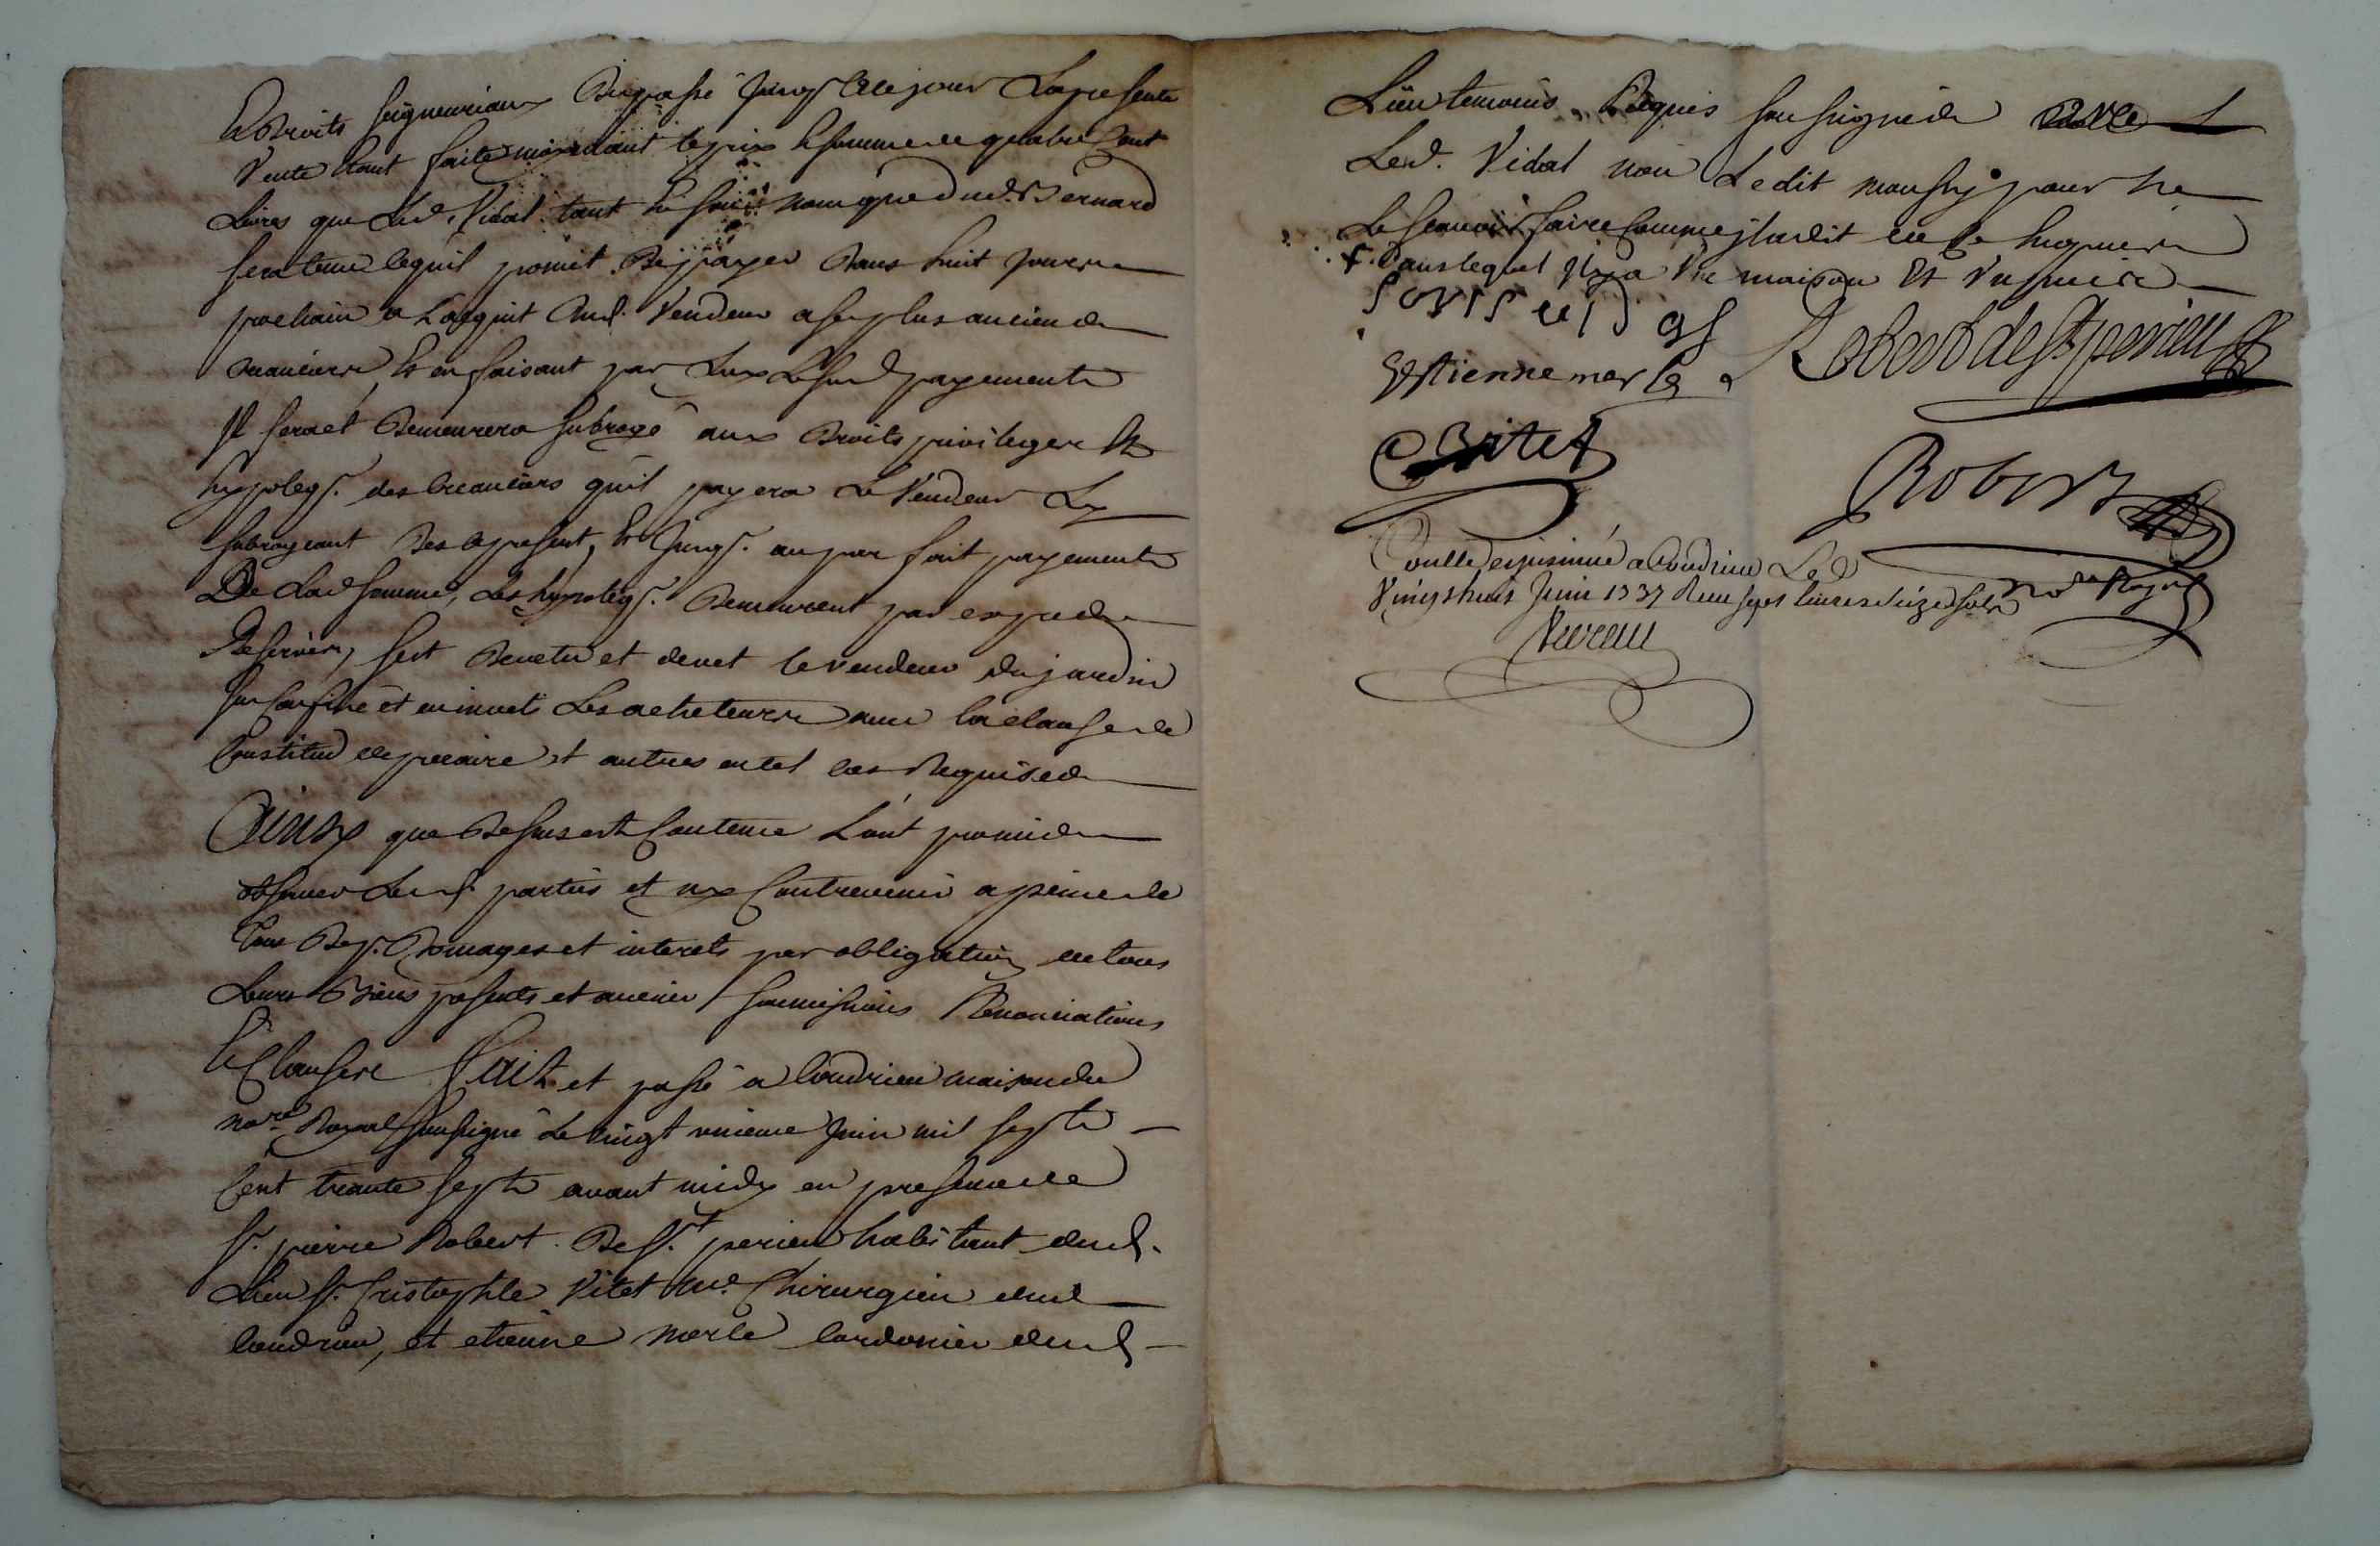 Et droits seigneuriaux Du passé jusqs a ce jour La presente
Vente étant faitte moyenant le prix et somme de quatre Cent
Livres que Led. Vidal tant En son nom que dud. Bernard
sera tenu lequil promet De payer Dans huit jours
prochain a L'acquit dud. Vendeur a ses plus anciens
creanciers, Et en faisant par Luy Lesusd payements
Il sera et Demeurera subrogé aux Droits privileges et
hypoteqs. des Creanciers qu'il payera Le Vendeur Ly
subrogeant Des apresent, Et jusqs. au par fait payements
De Lad somme, Les hypoteqs. Demeurent par exprès
Reservées, sest Devetu et devet le vendeur du jardin
sus Confiné et en invets Les acheteurs avec la clause de
Constitut de precaire et autres en tel cas Requises
Ainsy que Dessus est Contenu L'ont promis
observer Lesd. parties et ny Contrevenir a peine de
tous Dep. Domages et interets par obligation de tous
Leurs Biens presents et avenir soumissions Renonciations
Et Clauses Fait et passé a Condrieu maison du
nore. Royal soussigné Le vingt unieme Juin mil sept
Cent trente sept avant midy en presence de
sr. pierre Robert De st. perieu habitant dud.
Lieu sr. Cristophle Vitet me. Chirurgien dud
Condrieu, et etienne merle Cordonier dud.
Lieu temoins Requis soussignés avec
Led. Vidal non Ledit moussy pour ne
Le scavoir faire Comme il a dit de ce Enquis
Dans lequel il y a Une maison Et Un puis
Estienne merle Robert de St perieu
C Vitet
Robert
Conllé et insinué a Condrieu Led
Vingt huit Juin 1737 Reçu sept livres seize sols
nore Royal